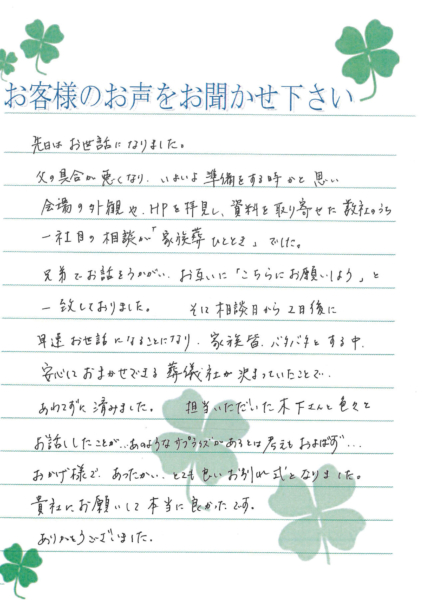 お客様のお声をお聞かせ下さい
先日は お世話になりました。
父の具合が 悪くなり、いよいよ 準備をする時かと 思い
会場の外観や、HPを拝見し、資料を取り寄せた 数社のうち
一社目の 相談が「家族葬 ひととき」でした。
兄弟でお話をうかがい、お互いに「こちらにお願いしよう」と
一致しておりました。 そして相談日から 2日後に
早速 お世話になることになり、家族皆、バタバタと する中、
安心して おまかせできる 葬儀社が 決まっていたことで、
あわてずに 済みました。 担当いただいた 木下さんと 色々と
お話ししたことが…あのようなサプライズがあるとは 考えもおよばず…
おかげ様で、あったかい、とても良いお別れ式と なりました。
貴社に お願いして 本当に 良かったです。
ありがとうございました。